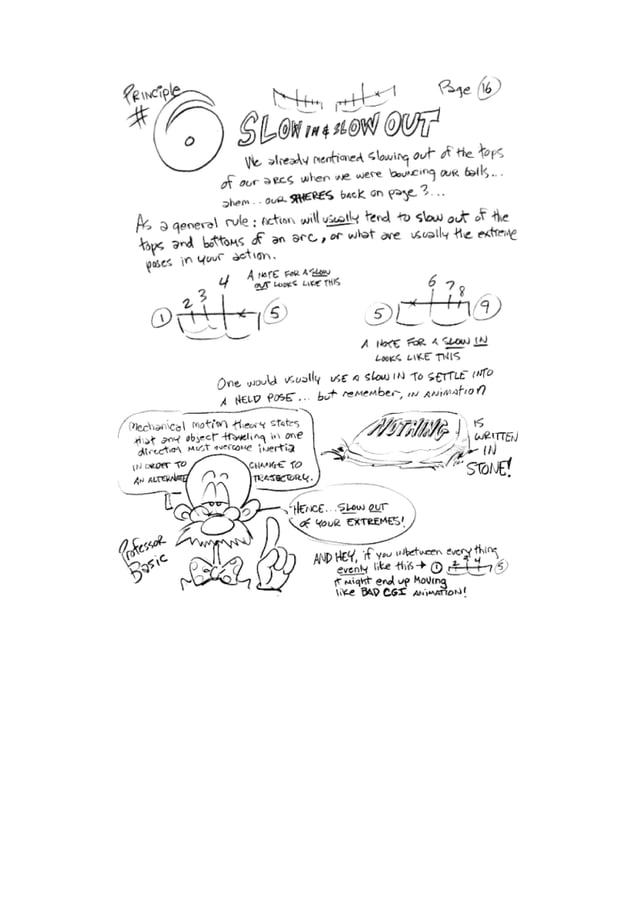 PRINCIPLE
# 6
Page 16
SLOW IN & SLOW OUT
We already mentioned slowing out of the tops
of our arcs when we were bouncing our balls...
ahem.. our SPHERES back on page 3...
As a general rule: Action will usually tend to slow out of the
tops and bottoms of an arc, or what are usually the extreme
poses in your action.
A NOTE FOR A SLOW
OUT LOOKS LIKE THIS
1 2 3 4 5
5 6 7 8 9
A NOTE FOR A SLOW IN
LOOKS LIKE THIS
One would usually USE A SLOW IN TO SETTLE INTO
A HELD POSE... but remember, IN ANIMATION
NOTHING
IS
WRITTEN
IN
STONE!
Mechanical motion theory states
that any object traveling in one
direction must overcome inertia
IN ORDER TO CHANGE TO
AN ALTERNATE TRAJECTORY.
HENCE... SLOW OUT
OF YOUR EXTREMES!
Professor
Basic
AND HEY, if you inbetween everything
evenly like this → 1 2 3 4 5
it might end up moving
like BAD CGI ANIMATION!